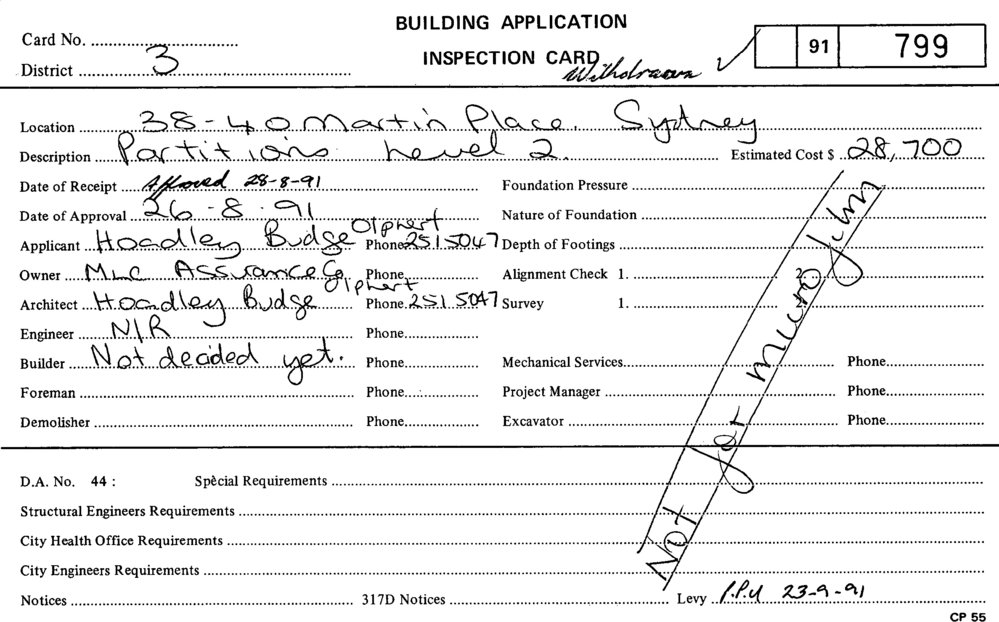 BUILDING APPLICATION
Card No.
INSPECTION CARD
91 799
District 3
Withdrawn ✓
Location 38-40 Martin Place. Sydney
Description Partitions Level 2. Estimated Cost $ 28,700
Date of Receipt Approved 28-8-91 Foundation Pressure
Date of Approval 26-8-91 Nature of Foundation
Applicant Hoadley Budge Olphert Phone 251 5047 Depth of Footings
Owner MLC Assurance Co. Phone Alignment Check 1. 2.
Architect Hoadley Budge Olphert Phone 251 5047 Survey 1.
Engineer N/R Phone
Builder Not decided yet. Phone Mechanical Services Phone
Foreman Phone Project Manager Phone
Demolisher Phone Excavator Phone
Not for microfilm
D.A. No. 44 : Special Requirements
Structural Engineers Requirements
City Health Office Requirements
City Engineers Requirements
Notices 317D Notices Levy 23-9-91
CP 55